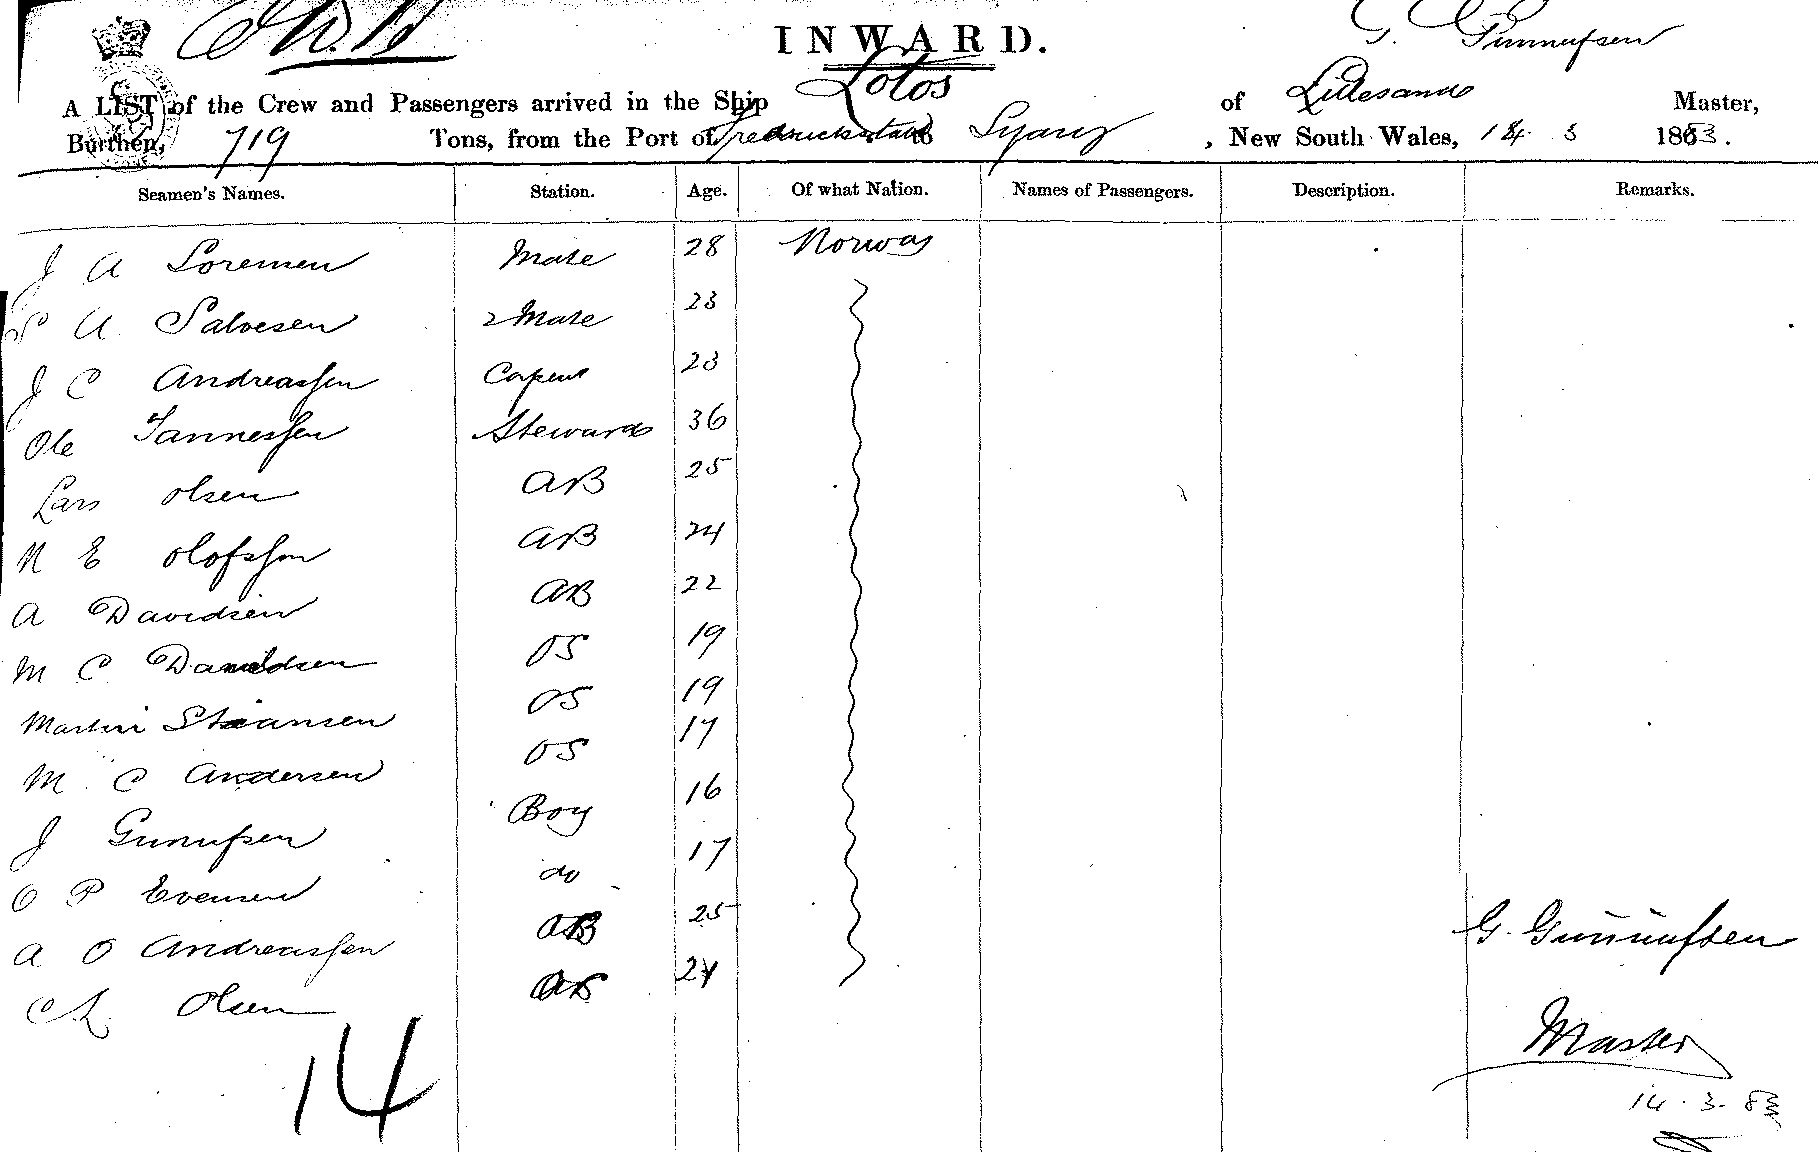 INWARD.
G. Gunnufsen
A LIST of the Crew and Passengers arrived in the Ship Lotos of Lillesand Master,
Burthen, 719 Tons, from the Port of Fredrickstad to , New South Wales, 14 3 1883.
Seamen's Names. Station. Age. Of what Nation. Names of Passengers. Description. Remarks.
J A Sorensen Mate 28 Norway
A Salvesen 2 Mate 23
J C Andreassen Carpent 23
Ole Tannessen Steward 36
Lars Olsen AB 25
N E Olofsson AB 24
A Davidsen AB 22
M C Danielsen OS 19
Martin OS 19
M C Andersen OS 17
J Gunufsen Boy 16
O P Evensen do 17
A O Andreassen AB 25
Olsen 24
G. Gunnufsen
Master
14
14.3.83